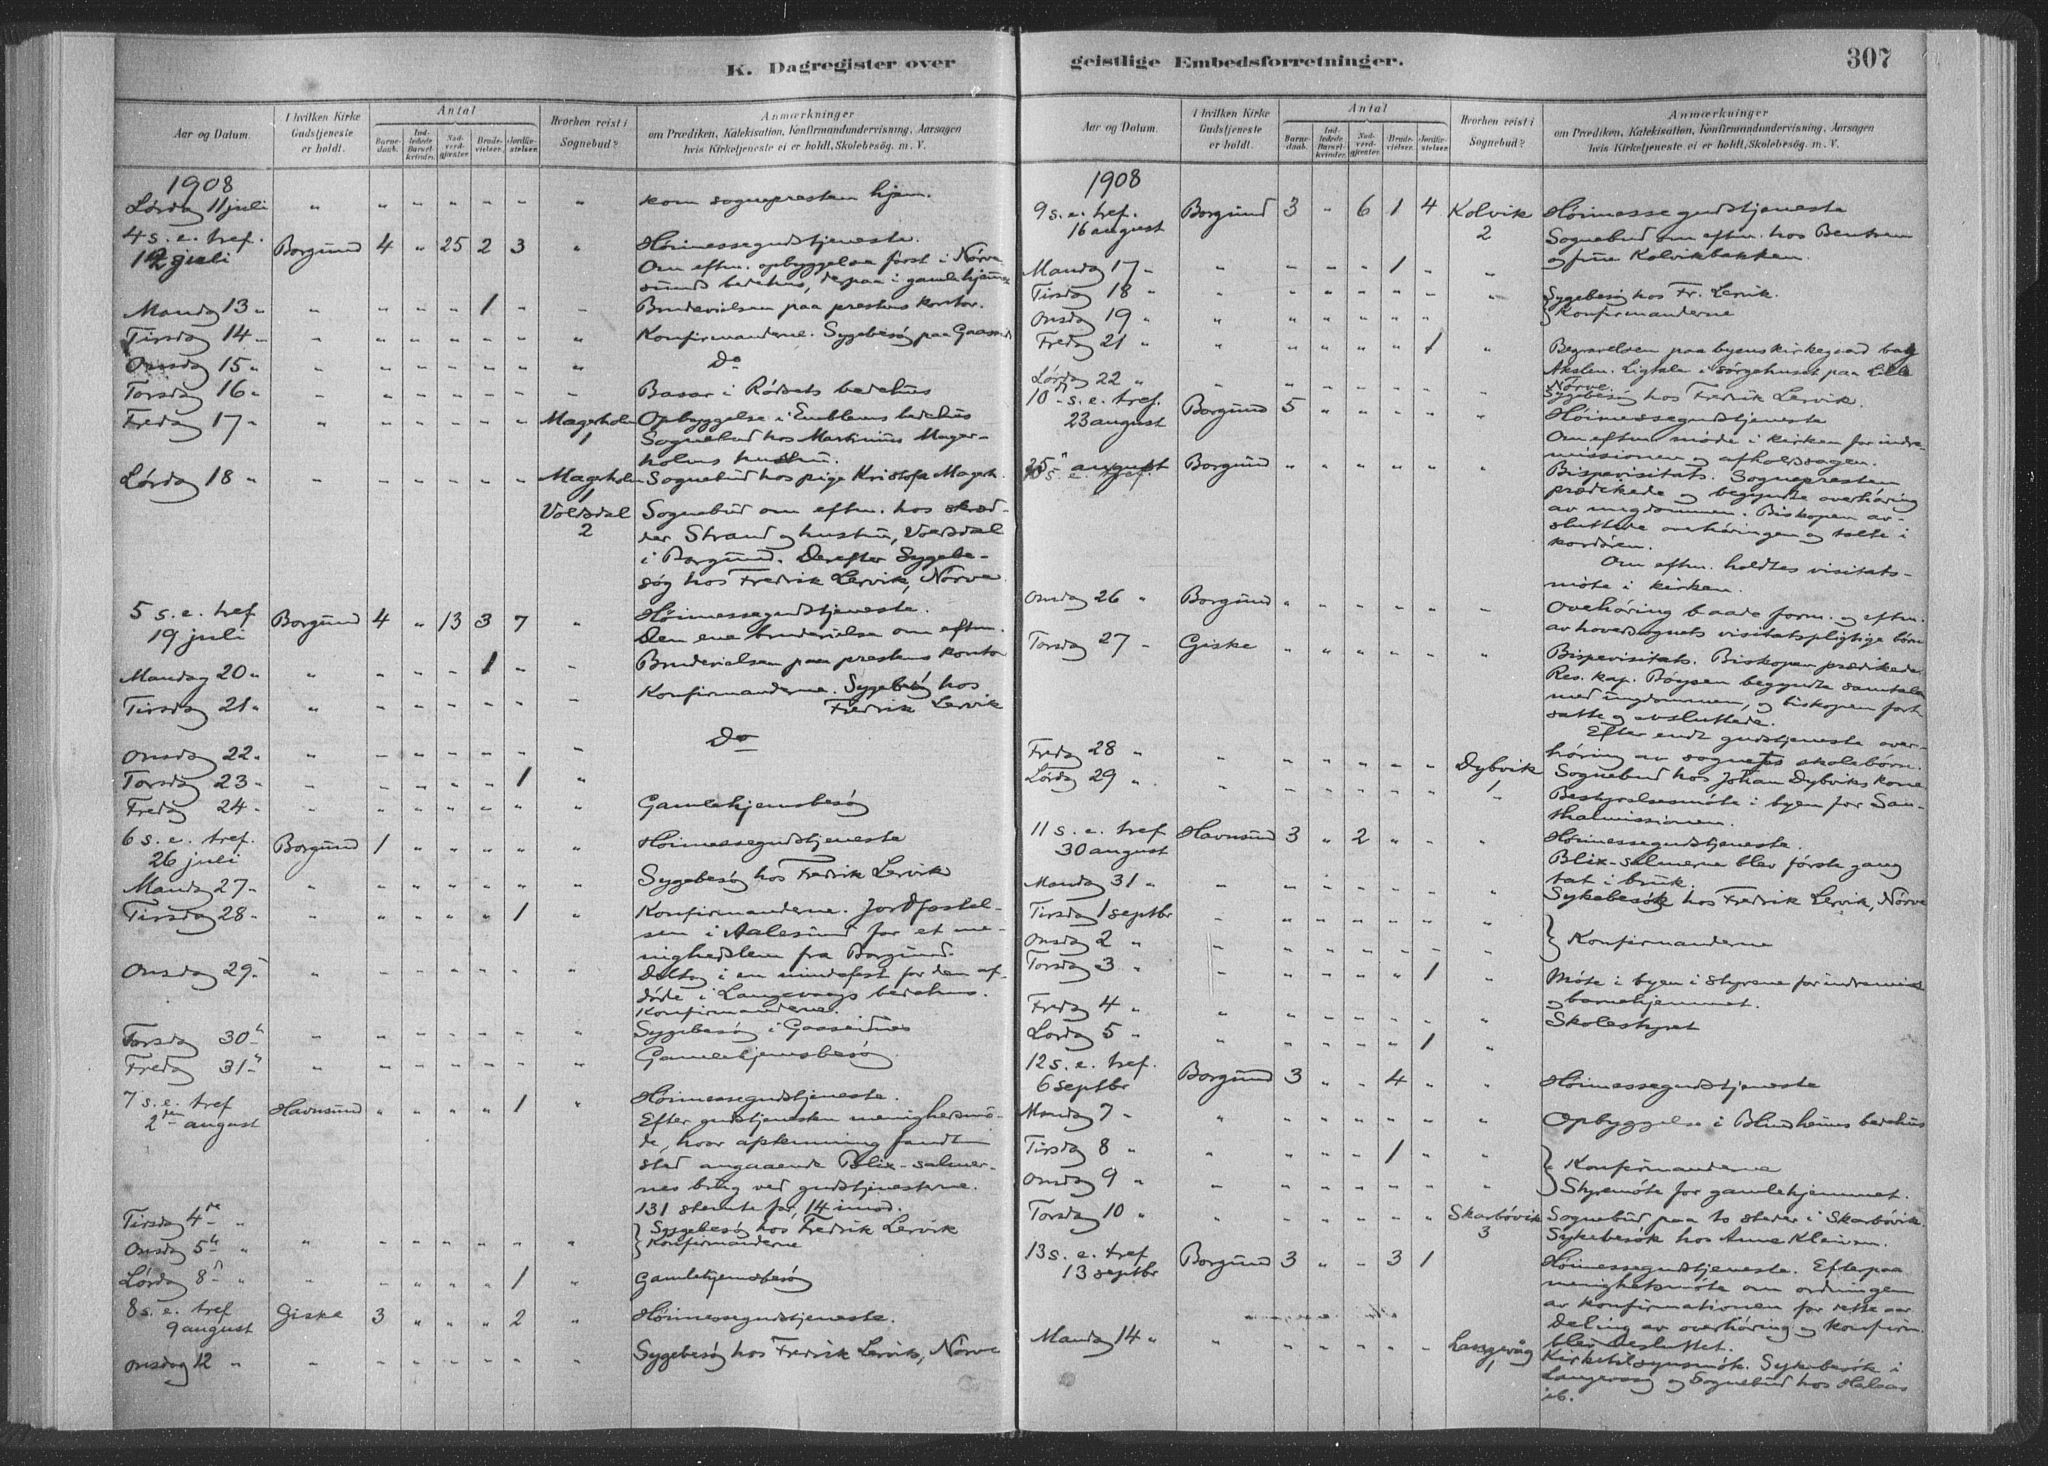 K. Dagregister over
Aar og Datum.
I hvilken Kirke Gudstjeneste er holdt.
Antal
Barnedaab.
Indledede Barselkvinder.
Nadverdgjæster.
Brudevielser.
Jordfæstelser.
Hvorhen reist i Sognebud?
Anmærkninger
om Prædiken, Katekisation, Konfirmandundervisning, Aarsagen
hvis Kirketjeneste ei er holdt, Skolebesøg. m. V.
1908
Lørdag 11 juli " " " " " " " kom sognepresten hjem.
4 s. e. tref.
12 juli Borgund 4 " 25 2 3 " Høimessegudstjeneste.
Om eftm. opbyggelse først i Nørve
sunds bedehus, derpaa i gamlehjemmet
Mandag 13 " " " " " " 1 " " Brudevielsen paa prestens kontor.
Tirsdag 14 " " " " " " " " Konfirmanderne. Sygebesøg paa Gaaseid
Onsdag 15 " " " " " " " " Do
Torsdag 16 " " " " " " " " Basar i Rødsets bedehus
Fredag 17 " " " " " " " Magerholm Opbyggelse i Emblems bedehus
1 Sognebud hos Martinus Mager-
holms hustru.
Lørdag 18 " " " " " " " Magerholm Sognebud hos pige Kristofa Magerh.
1
Volsdal Sognebud om eftm. hos skræd-
2 der Strand og hustru, Volsdal
i Borgund. Derefter Sygebe-
søg hos Fredrik Lervik, Nørve.
5 s. e. tref
19 juli Borgund 4 " 13 3 7 " Høimessegudstjeneste.
Den ene brudevielse om eftm.
Mandag 20 " " " " " 1 " " Brudevielsen paa prestens kontor
Tirsdag 21 " " " " " " " " Konfirmanderne. Sygebesøg hos
Fredrik Lervik
Onsdag 22 " " " " " " " " Do
Torsdag 23 " " " " " " 1 "
Fredag 24 " " " " " " " " Gamlehjemsbesøg
6 s. e. tref.
26 juli Borgund 1 " " " " " Høimessegudstjeneste
Mandag 27 " " " " " " " " Sygebesøg hos Fredrik Lervik
Tirsdag 28 " " " " " " 1 " Konfirmanderne. Jordfæstel-
sen i Aalesund for et me-
nighedslem fra Borgund.
Onsdag 29 " " " " " " " " Deltog i en mindefest for den af-
døde i Langevaags bedehus.
Konfirmanderne.
Torsdag 30 " " " " " " " Sygebesøg i Gaaseidnes
Fredag 31 " " " " " " " Gamlehjemsbesøg
7 s. e. tref
2den august Havnsund " " " " 1 " Høimessegudstjeneste.
Efter gudstjenesten menighedsmø-
de, hvor afstemning fandt
sted angaaende Blix-salmer-
nes brug ved gudstjenesterne.
131 stemte for, 14 imod.
Tirsdag 4de " Sygebesøg hos Fredrik Lervik
Onsdag 5te " " " " " " " " Konfirmanderne
Lørdag 8de " " " " " " 1 " Gamlehjemsbesøg
8 s. e. tref
9 august Giske 3 " " " 2 " Høimessegudstjeneste.
Onsdag 12 " " " " " " " " Sygebesøg hos Fredrik Lervik, Nørve
geistlige Embedsforretninger.
307
Aar og Datum.
I hvilken Kirke Gudstjeneste er holdt.
Antal
Barnedaab.
Indledede Barselkvinder.
Nadverdgjæster.
Brudevielser.
Jordfæstelser.
Hvorhen reist i Sognebud?
Anmærkninger
om Prædiken, Katekisation, Konfirmandundervisning, Aarsagen
hvis Kirketjeneste ei er holdt, Skolebesøg. m. V.
1908
9 s. e. tref.
16 august Borgund 3 " 6 1 4 Kolvik Høimessegudstjeneste
2 Sognebud om eftm. hos
og frue Kolvikbakken.
Mandag 17 " " " " " 1 " "
Tirsdag 18 " " " " " " " " Sygebesøg hos Fr. Lervik.
Onsdag 19 " " " " " " " Konfirmanderne
Fredag 21 " " " " " " 1 " Begravelsen paa byens kirkegaard bag
Akslen. Ligtale i sørgehuset paa Lille
Nørve.
Lørdag 22 " " " " " " " " Sygebesøg hos Fredrik Lervik.
10 s. e. tref.
23 august Borgund 5 " " " " " Høimessegudstjeneste
Om eftm møde i kirken for indre-
missionen og afholdssagen.
25 august Borgund " " " " " " Bispevisitats. Sognepresten
prædikede og begyndte overhøring
av ungdommen. Biskopen av-
sluttede overhøringen og talte i
kordøren.
Om eftm. holdtes visitats-
møte i kirken.
Onsdag 26 " Borgund " " " " " " Overhøring baade form. og eftm.
av hovedsognets visitatspligtige børn
Torsdag 27 " Giske " " " " " " Bispevisitats. Biskopen prædikede.
Res. kap. Bøysen begyndte samtalen
med ungdommen, og biskopen fort-
satte og avsluttede.
Efter endt gudstjeneste over-
høring av sognets skolebørn.
Fredag 28 " " " " " " " Dybvik Sognebud hos Johan Dybviks kone
1
Lørdag 29 " " " " " " " " Bestyrelsesmøte i byen for San-
thalmissionen.
11 s. e. tref
30 august Havnsund 3 " 2 " " " Høimessegudstjeneste.
Blix-salmerne blev første gang
tat i bruk.
Mandag 31 " " " " " " " " Sykebesøk hos Fredrik Lervik, Nørve
Tirsdag 1 septbr " " " " " " "
Onsdag 2 " " " " " " " " Konfirmanderne
Torsdag 3 " " " " " " 1 " Møte i byen i styrene for indremis.
og barnehjemmet.
Fredag 4 " " " " " " " " Skolestyret
Lørdag 5 " " " " " " 1 "
12 s. e. tref.
6 septbr Borgund 3 " " 4 " " Høimessegudstjeneste
Mandag 7 " " " " " " " " Opbyggelse i Blindheims bedehus
Tirsdag 8 " " " " " 1 " " Konfirmanderne
Onsdag 9 " " " " " " " " Styremøte for gamlehjemmet.
Torsdag 10 " " " " " " " Skarbøvik Sognebud paa to steder i Skarbøvik.
3 Sykebesøk hos Anne
13 s. e. tref
13 septbr Borgund 3 " " 3 1 Høimessegudstjeneste. Efterpaa
menighetsmøte om ordningen
av konfirmationen for dette aar
Deling av overhøring og konfirm.
blev besluttet.
Mandag 14 " " " " " " " Langevåg Kirketilsynsmøte. Sykebesøk i
1 Langevaag og Sognebud hos
ib.